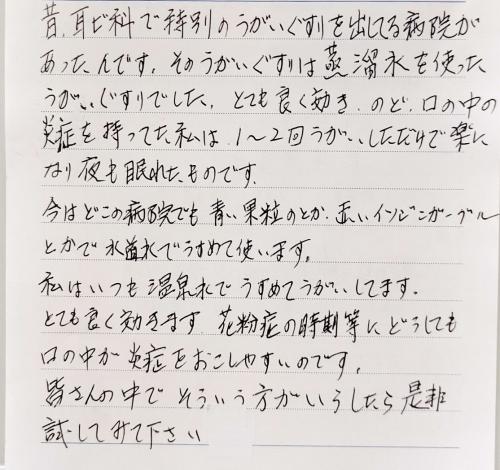 昔、耳ビ科で特別のうがいぐすりを出してる病院が
あったんです。そのうがいぐすりは蒸溜水を使った
うがいぐすりでした。とても良く効き、のど、口の中の
炎症を持ってた私は、1〜2回うがいしただけで楽に
なり夜も眠れたものです。
今はどこの病院でも青い果粒のとか、赤いインジンガーグル
とかで水道水でうすめて使います。
私はいつも温泉水でうすめてうがいしてます。
とても良く効きます。花粉症の時期等にどうしても
口の中が炎症をおこしやすいのです。
皆さんの中でそういう方がいらしたら是非
試してみて下さい